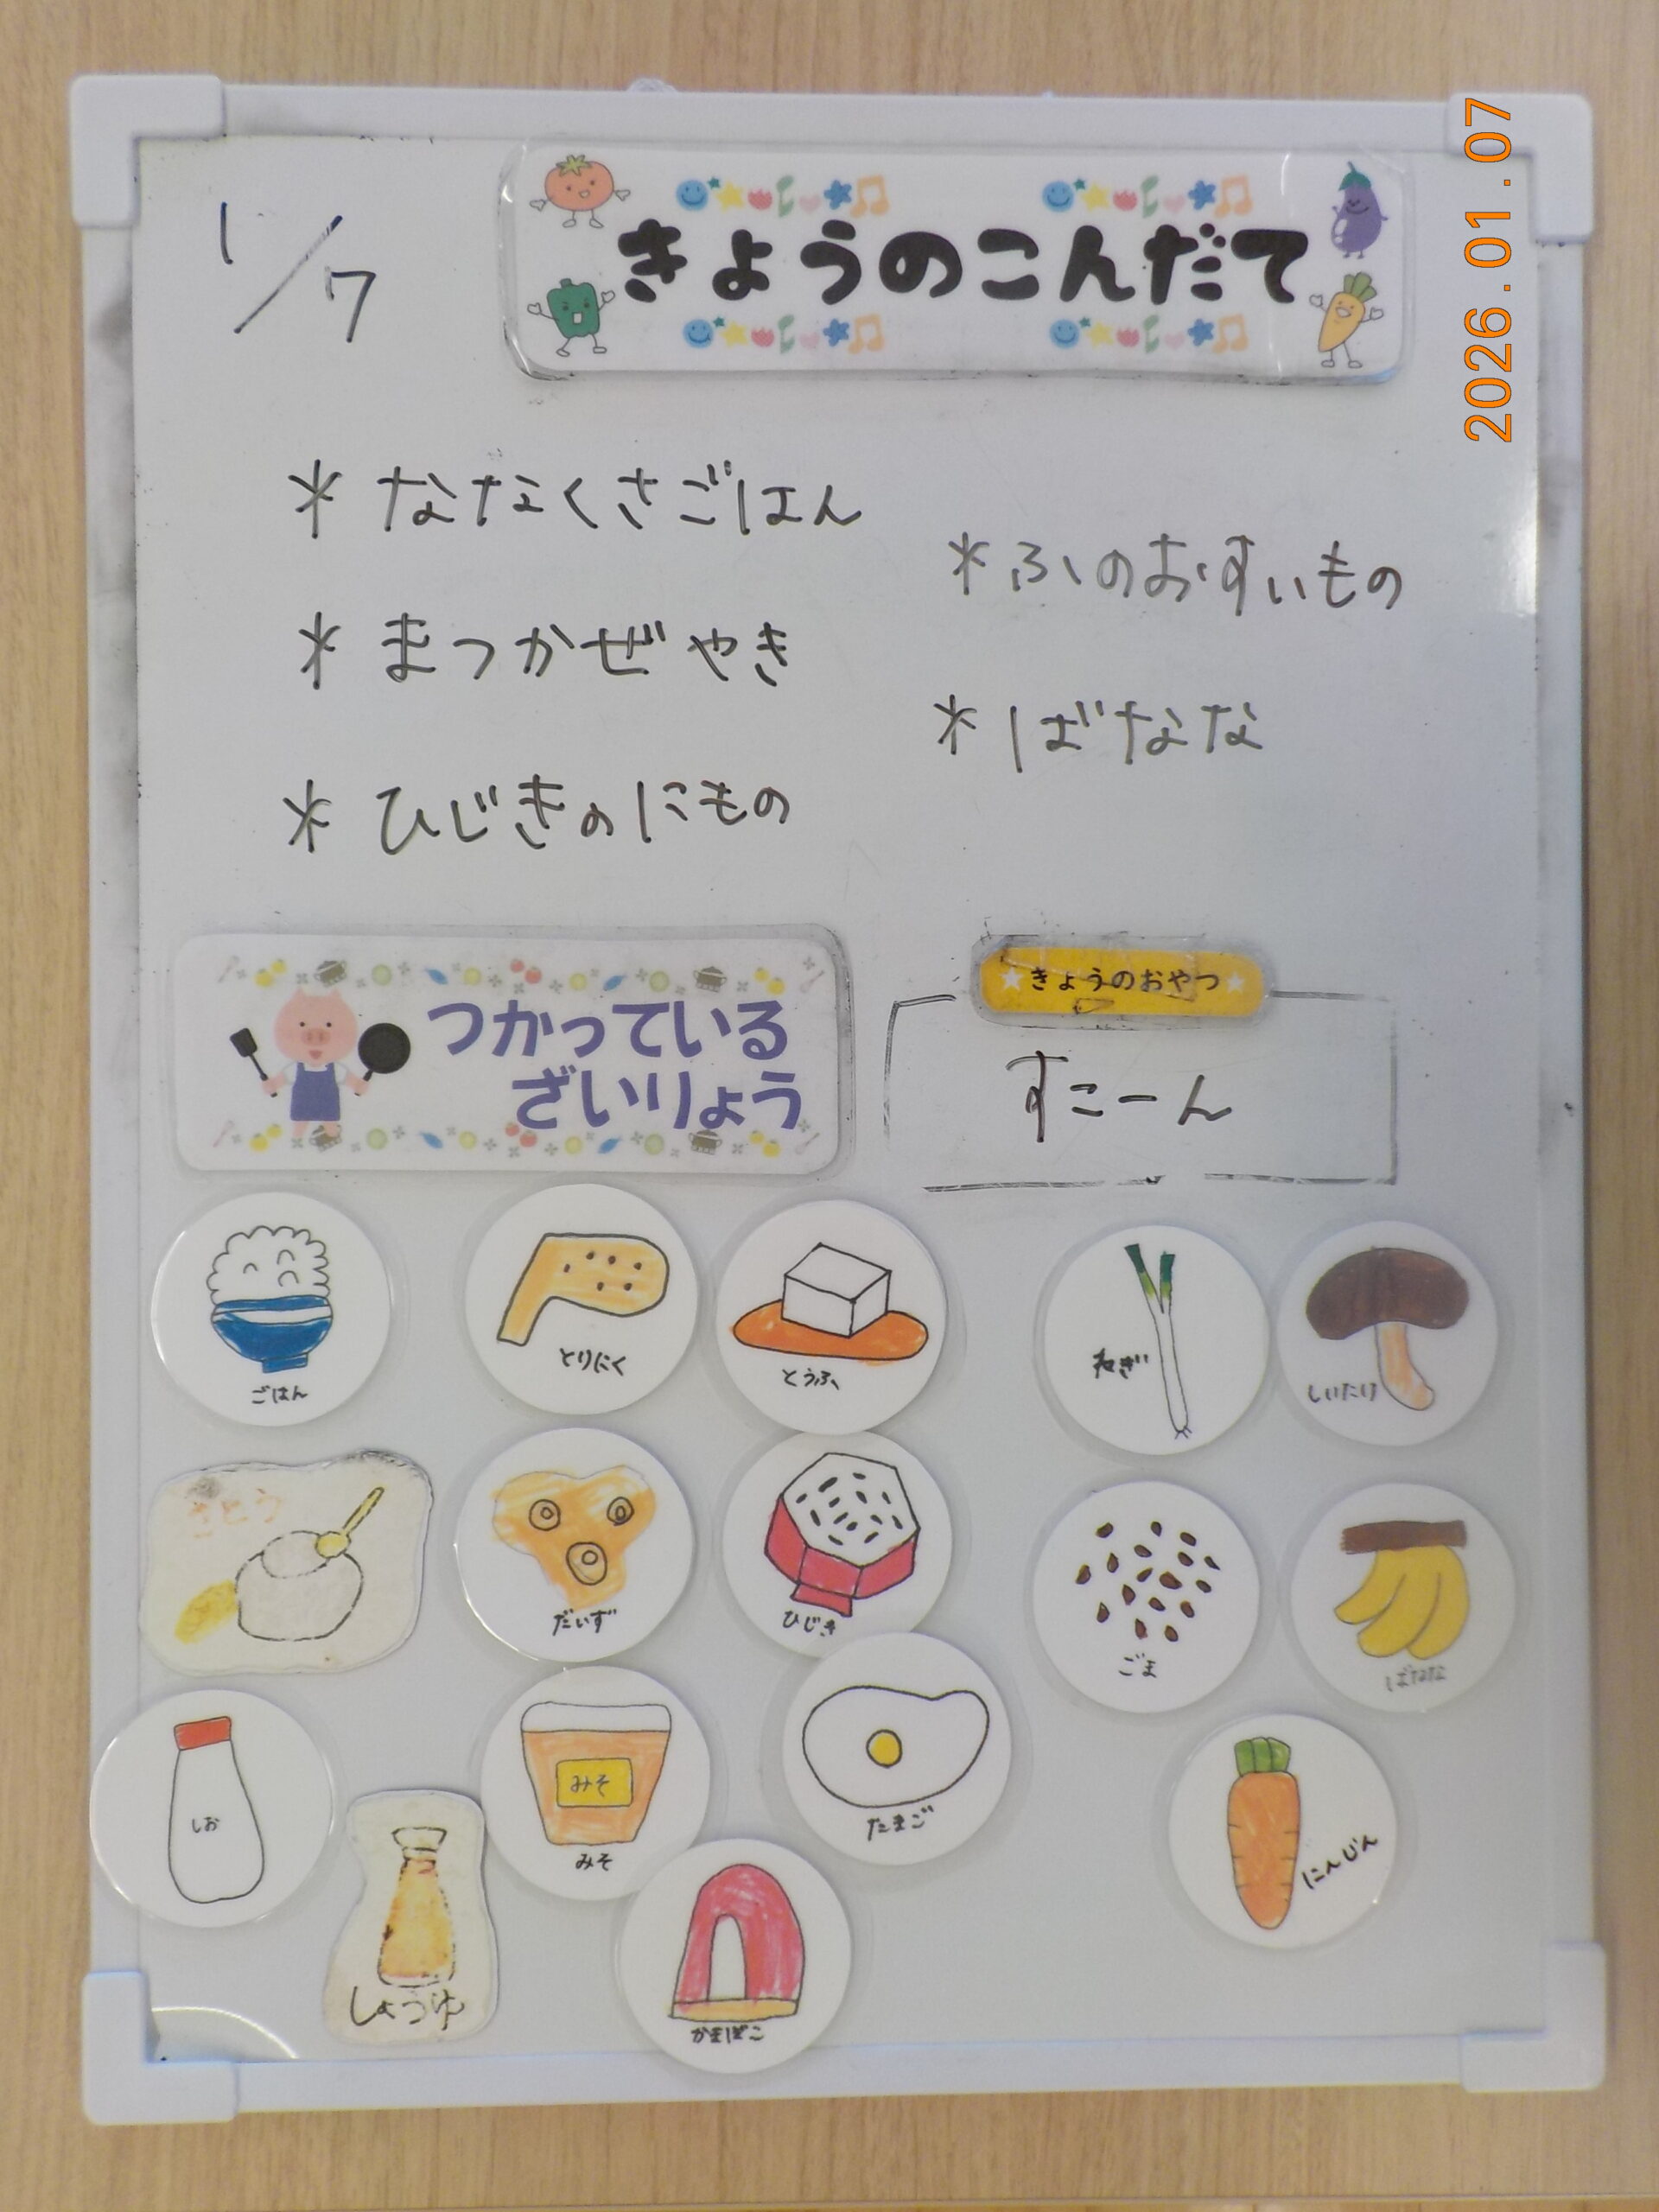 1/7
きょうのこんだて
2026.01.07
* ななくさごはん
* まつかぜやき
* ひじきのにもの
* ふのおすいもの
* ばなな
つかっている
ざいりょう
きょうのおやつ
すこーん
ごはん
とりにく
とうふ
ねぎ
しいたけ
さとう
だいず
ひじき
ごま
ばなな
しお
しょうゆ
みそ
みそ
たまご
かまぼこ
にんじん